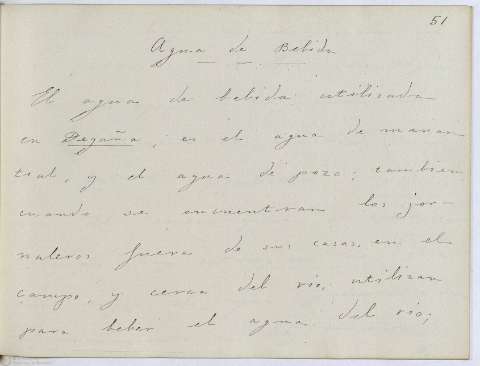 51
Agua de Bebida
El agua de bebida utilizada
en Degaña, es el agua de manan-
tial, y el agua de pozo; tambien
cuando se encuentran los jor-
naleros fuera de sus casas, en el
campo, y cerca del rio, utilizan
para beber el agua del rio;